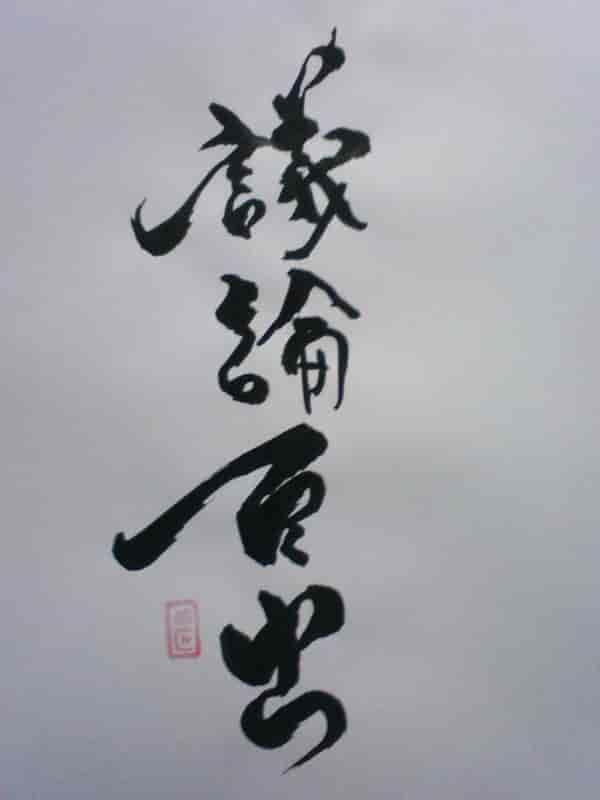 議論百出